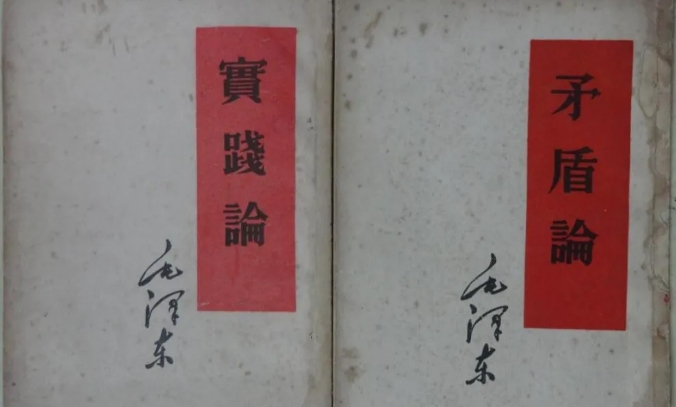 實踐論
毛泽东
矛盾論
毛泽东